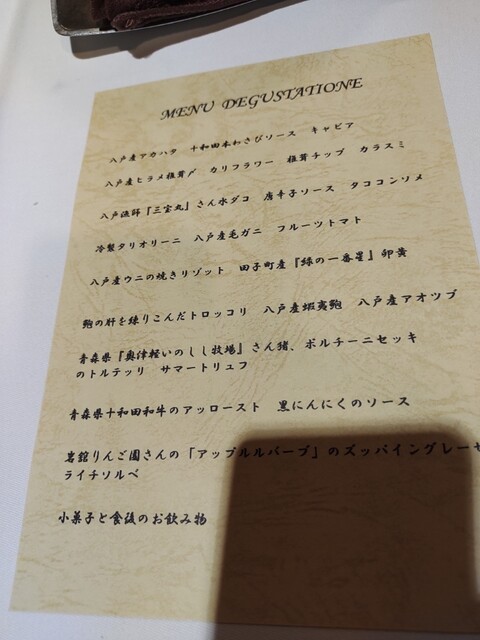 MENU DEGUSTATIONE
八戸産アカハタ 十和田本わさびソース キャビア
八戸産ヒラメ椎茸〆 カリフラワー 椎茸チップ カラスミ
八戸漁師「三宝丸」さん水ダコ 唐辛子ソース タココンソメ
冷製タリオリーニ 八戸産毛ガニ フルーツトマト
八戸産ウニの焼きリゾット 田子町産『緑の一番星』卵黄
鮑の肝を練りこんだトロッコリ 八戸産蝦夷鮑 八戸産アオツブ
青森県『奥津軽いのしし牧場』さん猪、ポルチーニセッキ
のトルテッリ サマートリュフ
青森県十和田和牛のアッロースト 黒にんにくのソース
岩舘りんご園さんの「アップルルバーブ」のズッパイングレーゼ
ライチソルベ
小菓子と食後のお飲み物